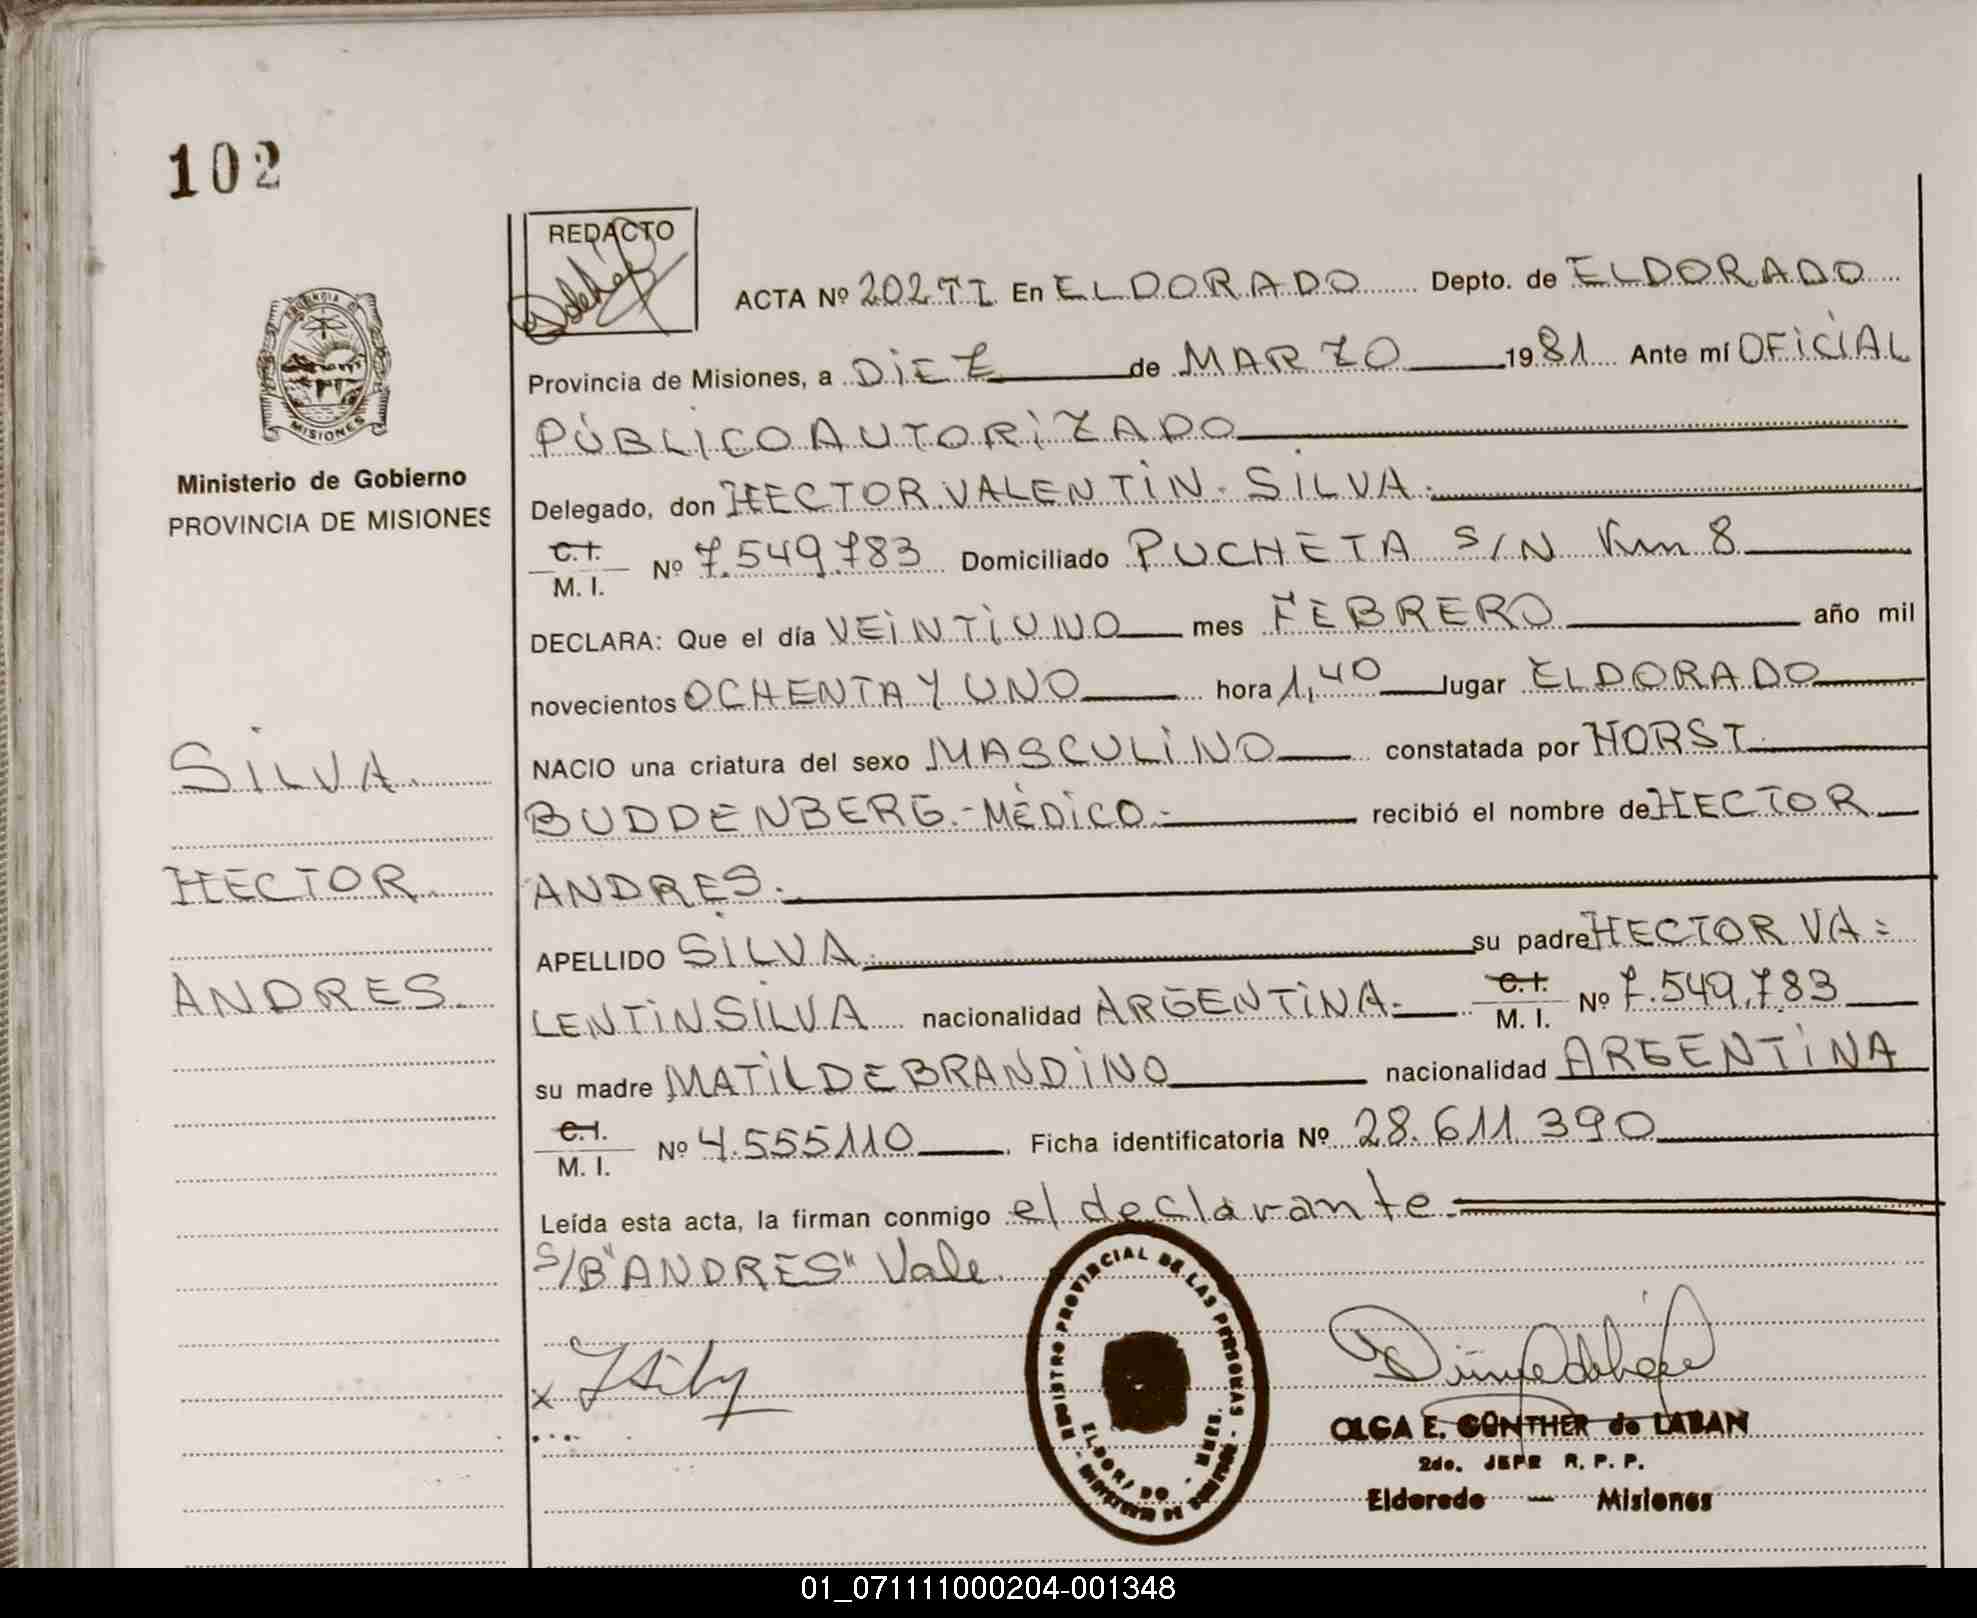 102
REDACTO
ACTA Nº 202 TI En ELDORADO Depto. de ELDORADO
Provincia de Misiones, a DIEZ de MARZO 1981 Ante mí OFICIAL
PÚBLICO AUTORIZADO
Delegado, don HECTOR VALENTIN SILVA.
C.I. M. I. Nº 7.549.783 Domiciliado PUCHETA S/N Km 8
DECLARA: Que el día VEINTIUNO mes FEBRERO año mil
novecientos OCHENTA Y UNO hora 1,40 lugar ELDORADO
NACIO una criatura del sexo MASCULINO constatada por HORST
BUDDENBERG.-MÉDICO.- recibió el nombre de HECTOR
ANDRES.
APELLIDO SILVA. su padre HECTOR VA=
LENTIN SILVA nacionalidad ARGENTINA.- C.I. M. I. Nº 7.549.783
su madre MATILDE BRANDINO nacionalidad ARGENTINA
C.I. M. I. Nº 4.555110. Ficha identificatoria Nº 28.611.390
Leída esta acta, la firman conmigo el declarante.
S/B "ANDRES" Vale
PROVINCIA DE
MISIONES
Ministerio de Gobierno
PROVINCIA DE MISIONES
SILVA.
HECTOR.
ANDRES.
x
REGISTRO PROVINCIAL DE LAS PERSONAS
ELDORADO
OLGA E. GÜNTHER de LABAN
2do. JEFE R. P. P.
Eldorado — Misiones
01_071111000204-001348